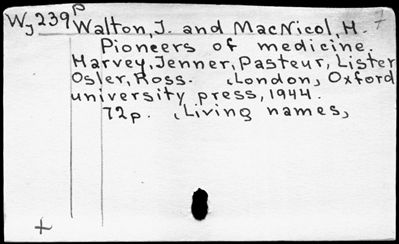 Wj239p Walton, J. and MacNicol, H. 7
Pioneers of medicine.
Harvey, Jenner, Pasteur, Lister
Osler, Ross. (London, Oxford
university press, 1944.
72p. (Living names)
+